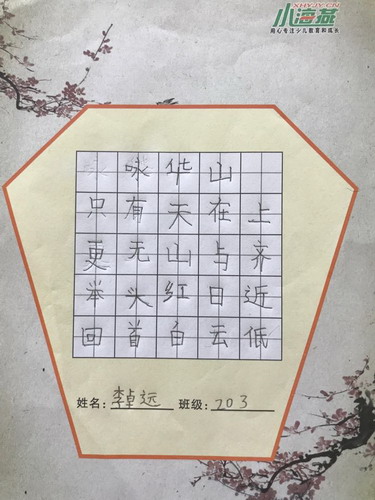 XHYJY.CN
小海燕
用心专注少儿教育和成长
咏华山
只有天在上
更无山与齐
举头红日近
回首白云低
姓名：李卓远 班级：203